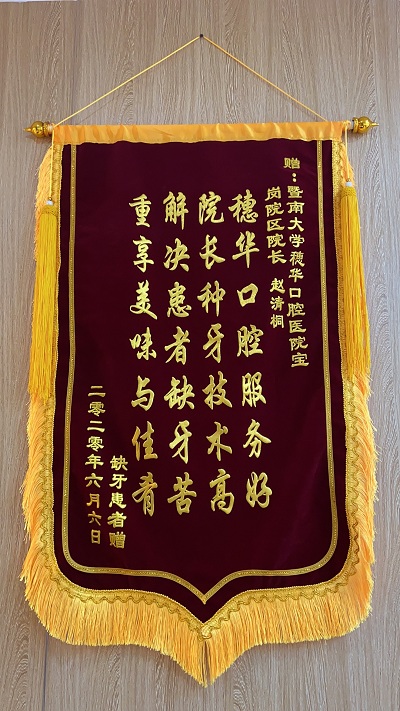 赠：暨南大学穗华口腔医院宝
岗院区院长 赵清桐
穗华口腔服务好
院长种牙技术高
解决患者缺牙苦
重享美味与佳肴
缺牙患者赠
二零二零年六月六日